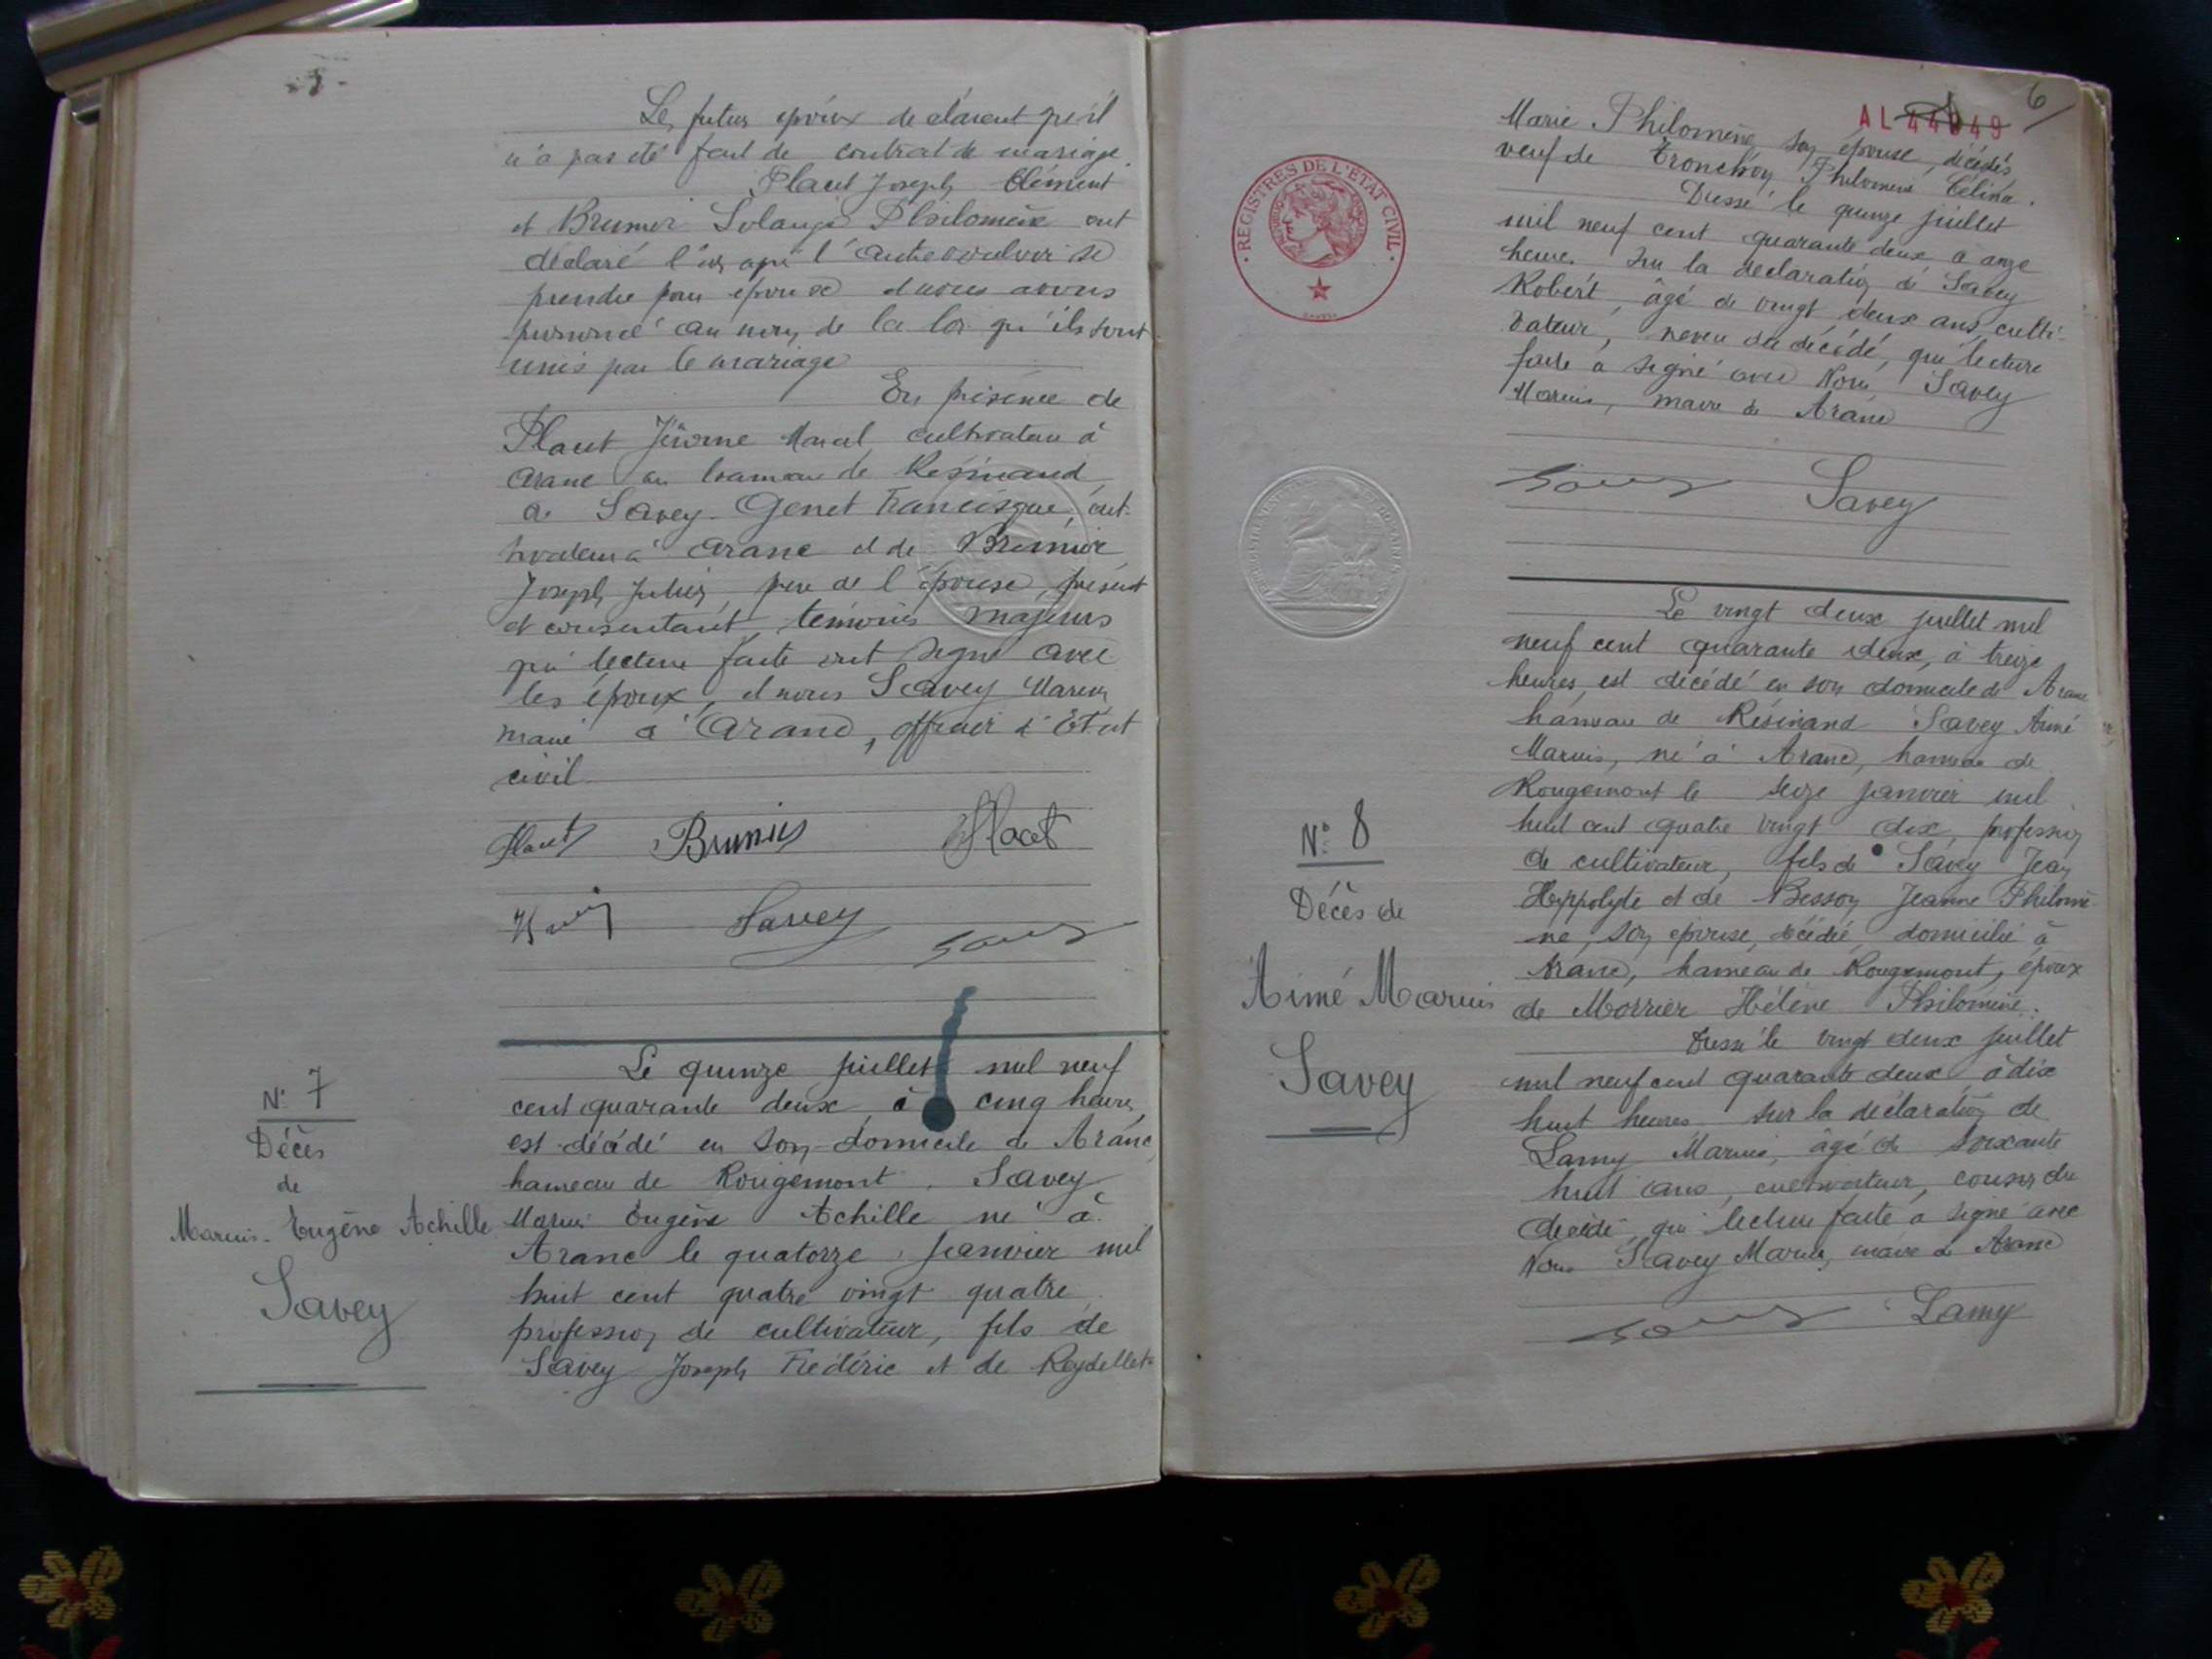 Les futurs époux déclarent qu'il
n'a pas été fait de contrat de mariage.
Placet Joseph Clément
et Brunier Solange Philomène ont
déclaré l'un après l'autre vouloir se
prendre pour époux et nous avons
prononcé au nom de la loi qu'ils sont
unis par le mariage
En présence de
Placet Jérôme Marcel cultivateur à
Aranc au hameau de Résinand,
de Savey-Genet Francisque, cul-
tivateur à Aranc et de Brunier
Joseph Julien, père de l'épouse, présent
et consentant, témoins majeurs
qui lecture faite ont signé avec
les époux, et nous Savey Marius
maire d'Aranc, officier d'Etat
civil.
Placet Brunier Placet
Savey
N° 7
Décès
de
Marius Eugène Achille
Savey
Le quinze juillet mil neuf
cent quarante deux, à cinq heures,
est décédé en son domicile de Aranc
hameau de Rougemont, Savey
Marius Eugène Achille né à
Aranc le quatorze janvier mil
huit cent quatre vingt quatre
profession de cultivateur, fils de
Savey Joseph Frédéric et de Reydellet
6
AL 44949
REGISTRES DE L'ÉTAT CIVIL
Marie Philomène son épouse, décédés,
veuf de Tronchon Philomène Célina.
Dressé le quinze juillet
mil neuf cent quarante deux à onze
heures sur la déclaration de Savey
Robert, âgé de vingt deux ans, culti-
vateur, neveu du décédé, qui lecture
faite a signé avec Nous Savey
Marius, maire de Aranc
Savey
N° 8
Décès de
Aimé Marius
Savey
Le vingt deux juillet mil
neuf cent quarante deux, à treize
heures, est décédé en son domicile de Aranc
hameau de Résinand Savey Aimé
Marius, né à Aranc, hameau de
Rougemont le seize janvier mil
huit cent quatre vingt dix, profession
de cultivateur, fils de Savey Jean
Hyppolyte et de Besson Jeanne Philomè-
ne, son épouse, décédés, domicilié à
Aranc, hameau de Rougemont, époux
de Morrier Hélène Philomène.
Dressé le vingt deux juillet
mil neuf cent quarante deux, à dix
huit heures sur la déclaration de
Lamy Marius, âgé de soixante
huit ans, cultivateur, cousin du
décédé, qui lecture faite a signé avec
Nous Savey Marius, maire de Aranc
Lamy